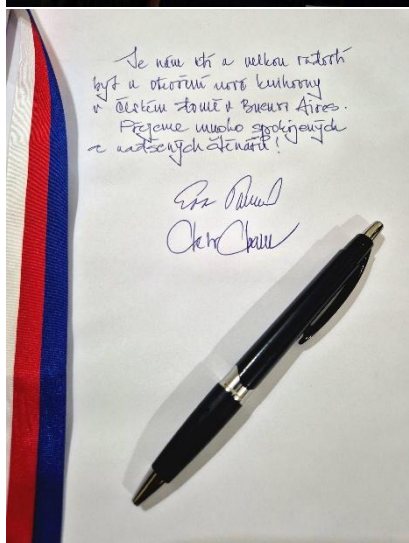 Je nám ctí a velkou radostí
být u otevření nové knihovny
v Českém domě v Buenos Aires.
Přejeme mnoho spokojených
a nadšených čtenářů!